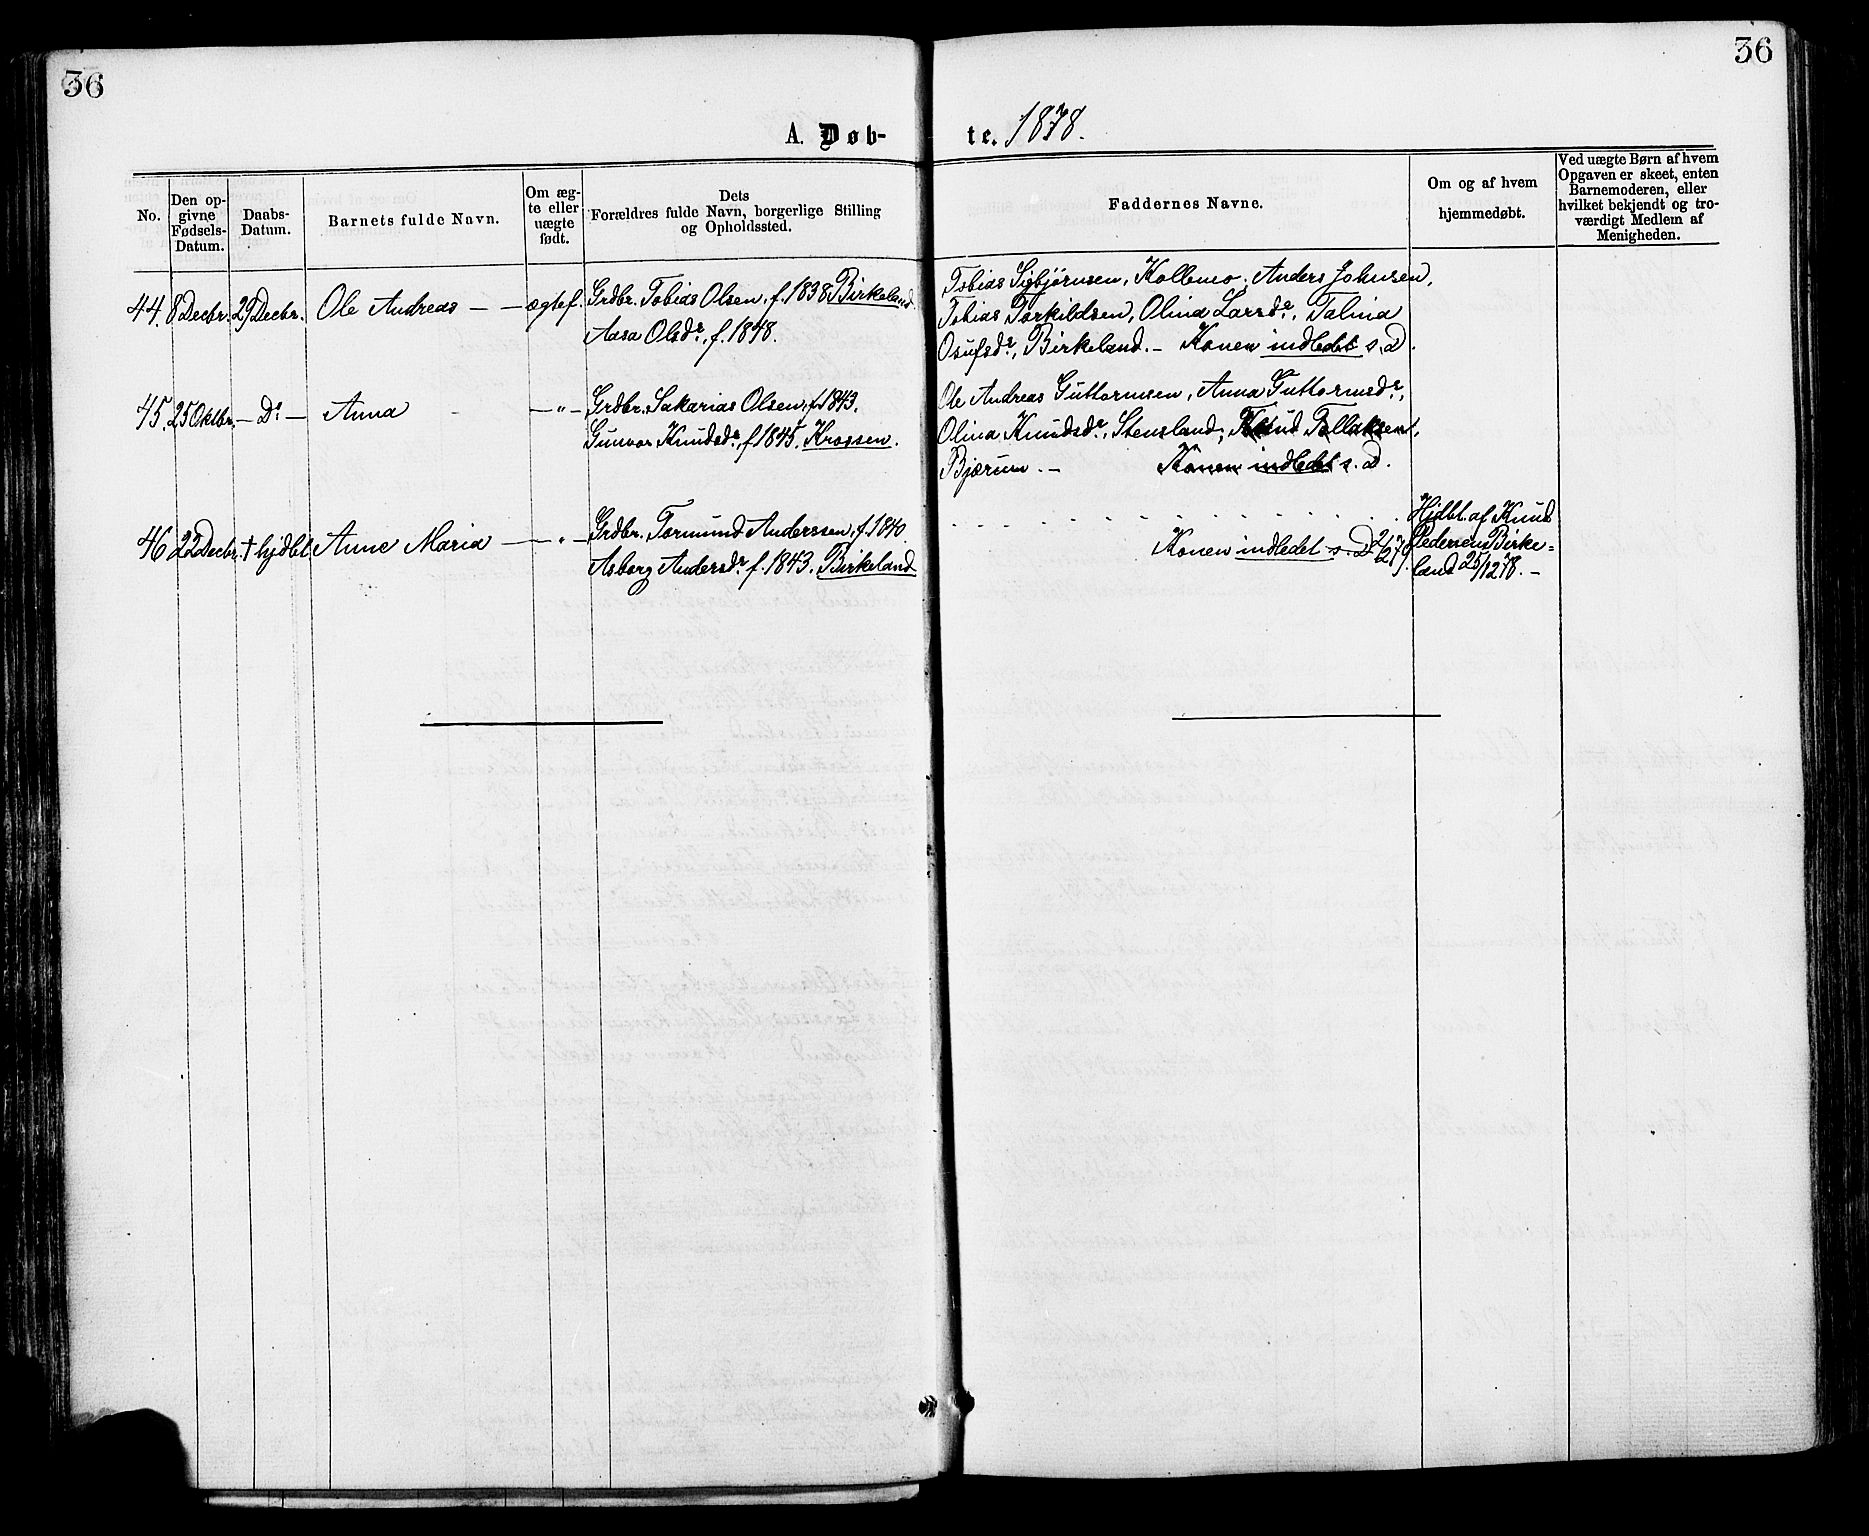 36
36
A. Døb-
te. 1878.
No.
Den op-
givne
Fødsels-
Datum.
Daabs-
Datum.
Barnets fulde Navn.
Om æg-
te eller
uægte
født.
Dets
Forældres fulde Navn, borgerlige Stilling
og Opholdssted.
Faddernes Navne.
Om og af hvem
hjemmedøbt.
Ved uægte Børn af hvem
Opgaven er skeet, enten
Barnemoderen, eller
hvilket bekjendt og tro-
værdigt Medlem af
Menigheden.
44. 8 Decbr. 29 Decbr. Ole Andreas — — ægtef. Grdbr. Tobias Olsen, f. 1838 Birkeland.
Aasa Olsdr., f. 1848.
Tobias Sigbjørnsen, Kollemo, Anders Johnsen,
Tobias Torkildsen, Olina Larsdr., Talina
Osufsdr., Birkeland. – Konen indledet s. D.
45. 25 Oktbr. — Do — Anna — „ — Grdbr. Sakarias Olsen, f. 1843.
Gunvor Knudsdr., f. 1845. Krossen.
Ole Andreas Guttormsen, Anna Guttormsdr.,
Olina Knudsdr., Stensland, Knud Tollaksen,
Bjærum. — Konen indledet s. D.
46. 22 Decbr. † hjdbt. Anne Maria — — „ — Grdbr. Tormund Anderssen, f. 1840.
Asborg Andersdr. f. 1843. Birkeland
Konen indledet s. D. 2/2 79.
Hjdbt. af Knud
Pedersen Birke=
land 25/12 78. –